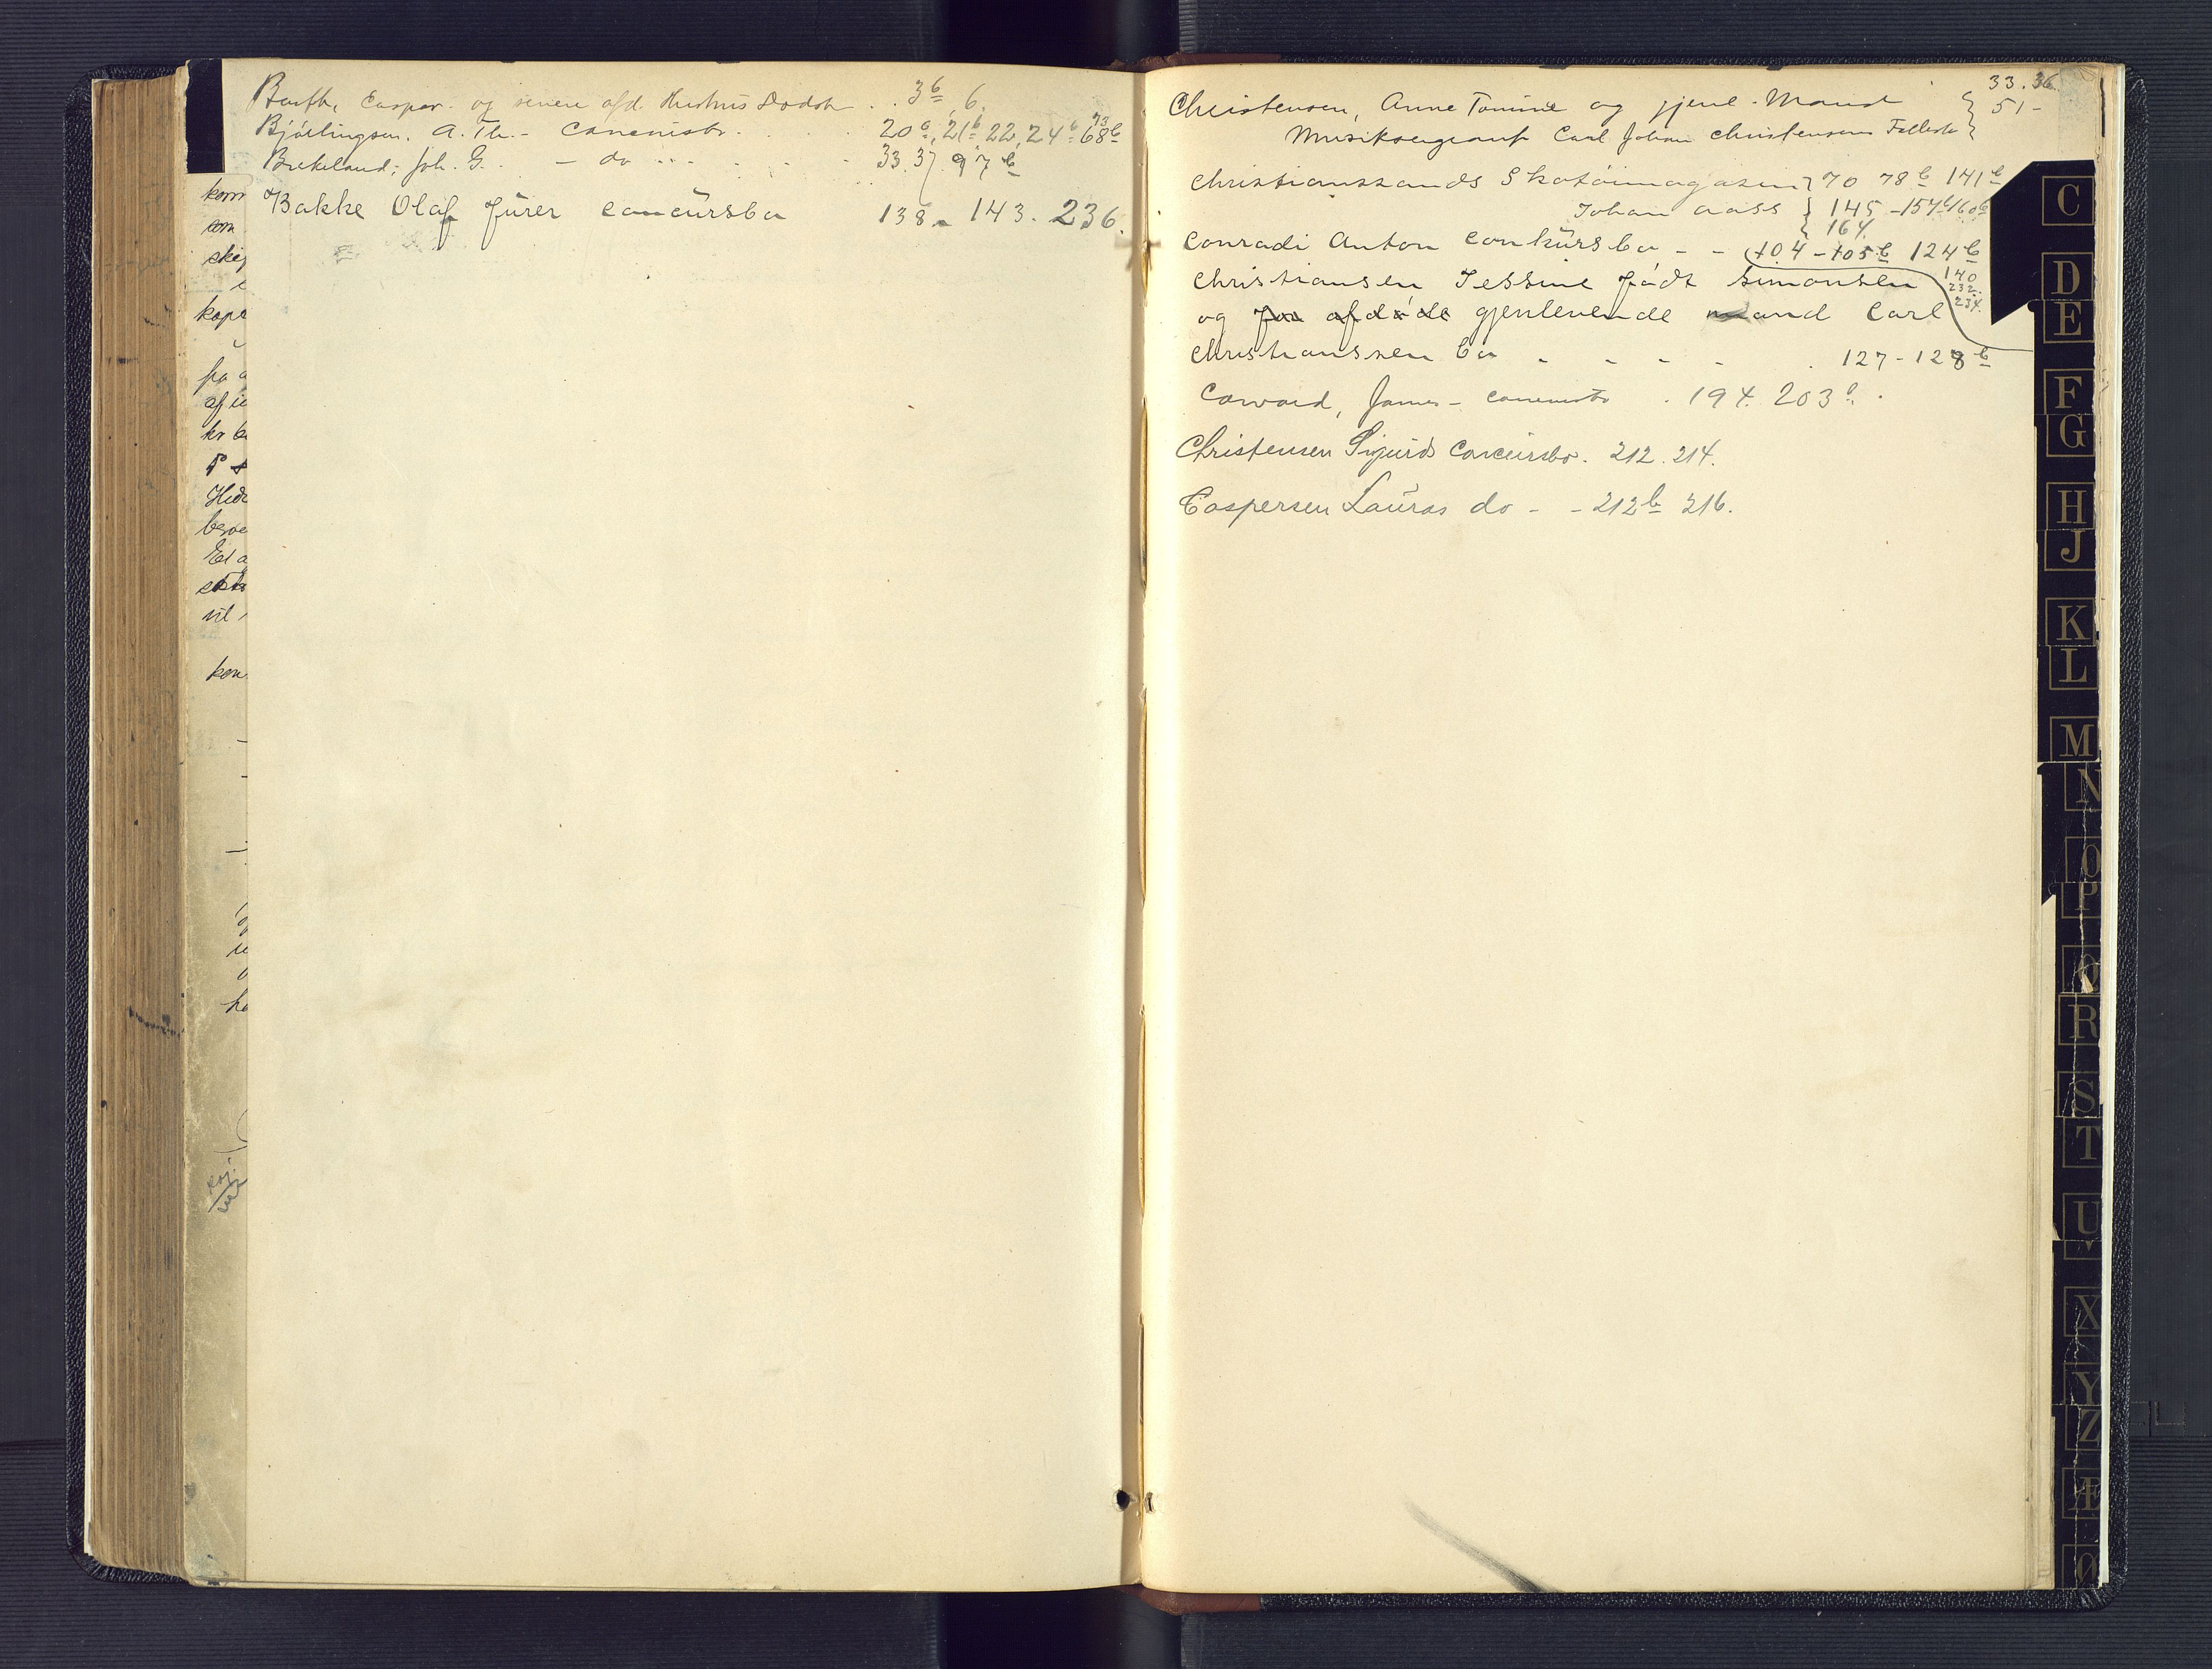 Barth, Casper og senere afd. Hustrus Dødsbo . . 3b, 6.
Bjørlingson. A. Th. - Concursbo . . . 20b, 21b, 22, 24b 68b 73
Birkeland, Joh. G. . - do . . . 33. 37. 97b
Bakke Olaf Fürer concürsbo 138 - 143. 236.
komm
som
skij
kape
fra a
af ie
kr
Hidr
El a
vil
kon
33. 36
Christensen, Anne Tomine og gjenl. Mand } 51 -
Musiksergeant Carl Johan Christensens Fællesbo
Christianssands Skotöimagasin } 70 78b 141b
Johan Aass } 145 - 157b 160b
} 164.
Conradi Anton conkürsbo - - 104 - 105b 124b
140
232.
234.
Christiansen Jessine född Simonsen
og for afdøde gjenlevende mand Carl
Christianssen bo - - - - . 127 - 128b
Coward, James - concursbo . 194. 203b .
Christensen Sigurds Concürsbo. 212. 214.
Caspersen Lauras do - - 212b 216.
C
D
E
F
G
H
J
K
L
M
N
O
P
Q
R
S
T
U
V
X
Y
Z
Æ
Ø